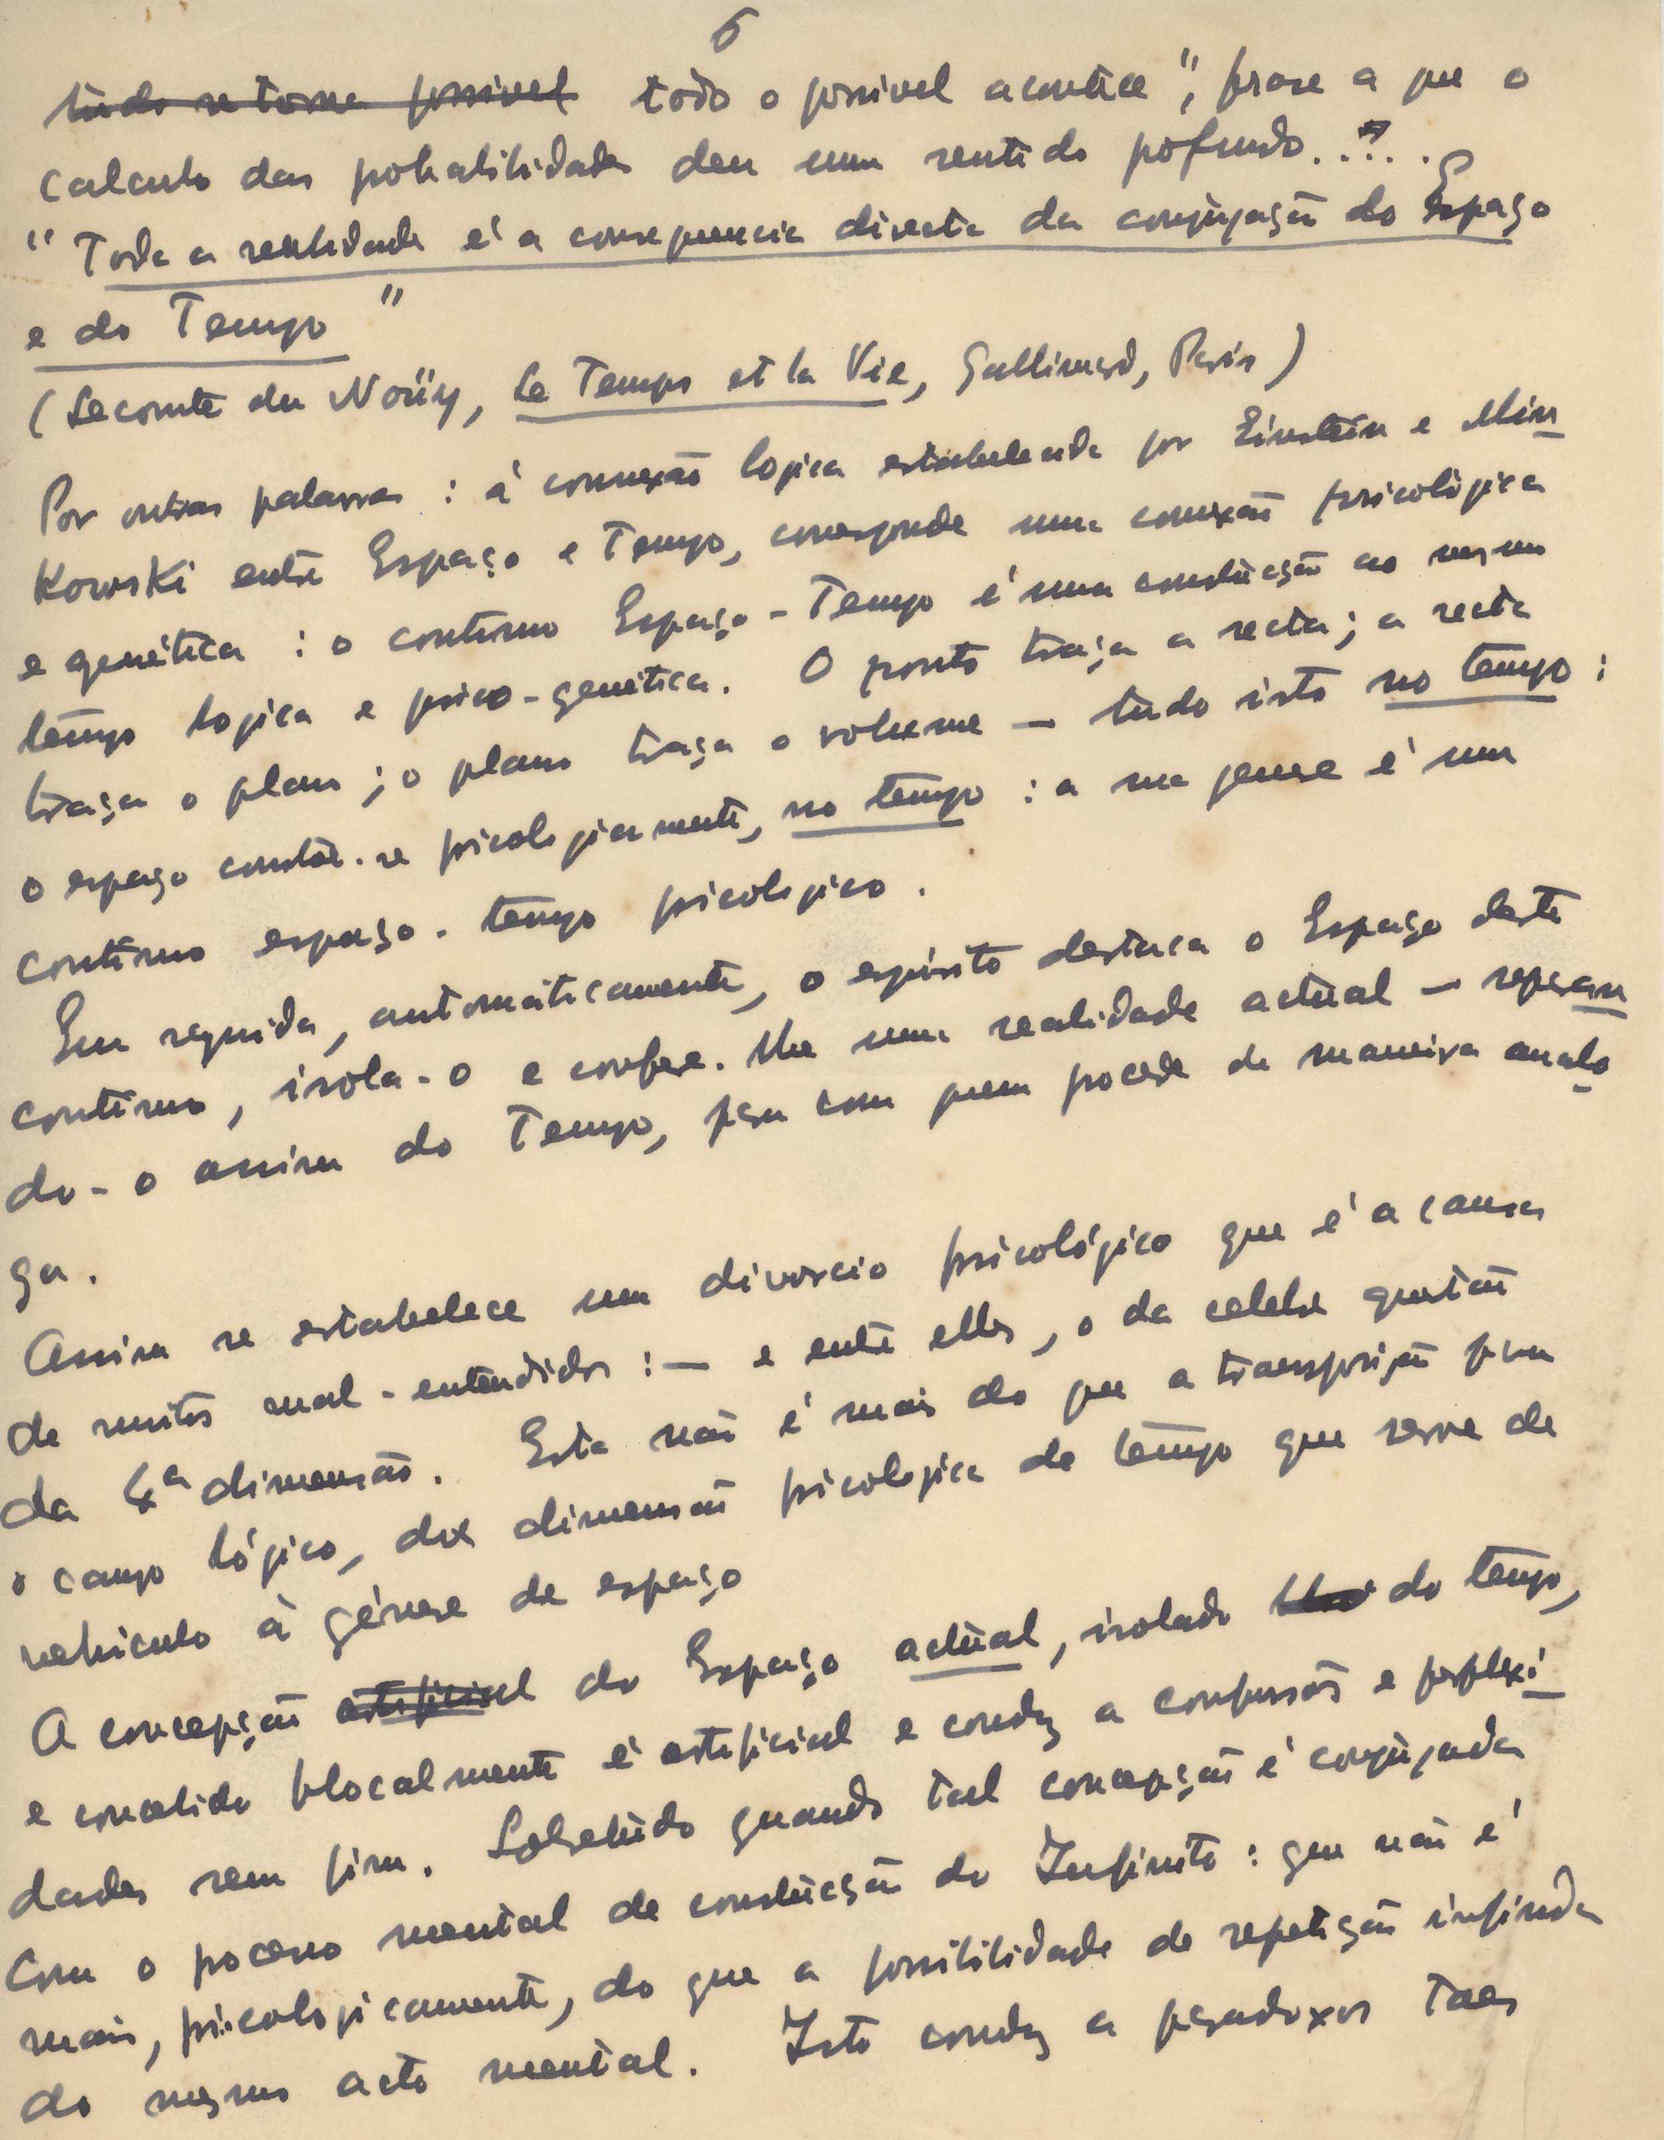 6
tudo se torna possivel todo o possivel acontece", frase a que o
calculo das probabilidades deu um sentido profundo....
"Toda a realidade é a consequencia directa da conjugação do Espaço
e do Tempo"
(Lecomte du Noüy, Le Temps et la Vie, Gallimard, Paris)
Por outras palavras : á connexão logica estabelecida por Einstein e Min
Kowski entre Espaço e Tempo, corresponde uma conexão psicológica
e genética : o contínuo Espaço-Tempo é uma construcção ao mesmo
tempo logica e psico-genética. O ponto traça a recta; a recta
traça o plano; o plano traça o volume — tudo isto no tempo :
o espaço constroe-se psicologicamente, no tempo : a sua genese é um
contínuo espaço-tempo psicologico.
Em seguida, automáticamente, o espirito destaca o Espaço deste
contínuo, isola-o e confere-lhe uma realidade actual — separan
do-o assim do Tempo, para com quem procede de maneira analo
ga.
Assim se estabelece um divorcio psicológico que é a causa
de muitos mal-entendidos :— e entre elles, o da celebre questão
da 4ª dimensão. Esta não é mais do que a transposição para
o campo lógico, da dimensão psicologica de tempo que serve de
vehiculo à génese de espaço
A concepção artificial do Espaço actual, isolado do tempo,
e concebido blocalmente é artificial e conduz a confusões e perplexi
dades sem fim. Sobretudo quando tal concepção é conjugada
com o processo mental de construcção do Infinito : que não é
mais, psicologicamente, do que a possibilidade de repetição infinda
do mesmo acto mental. Isto conduz a paradoxos taes